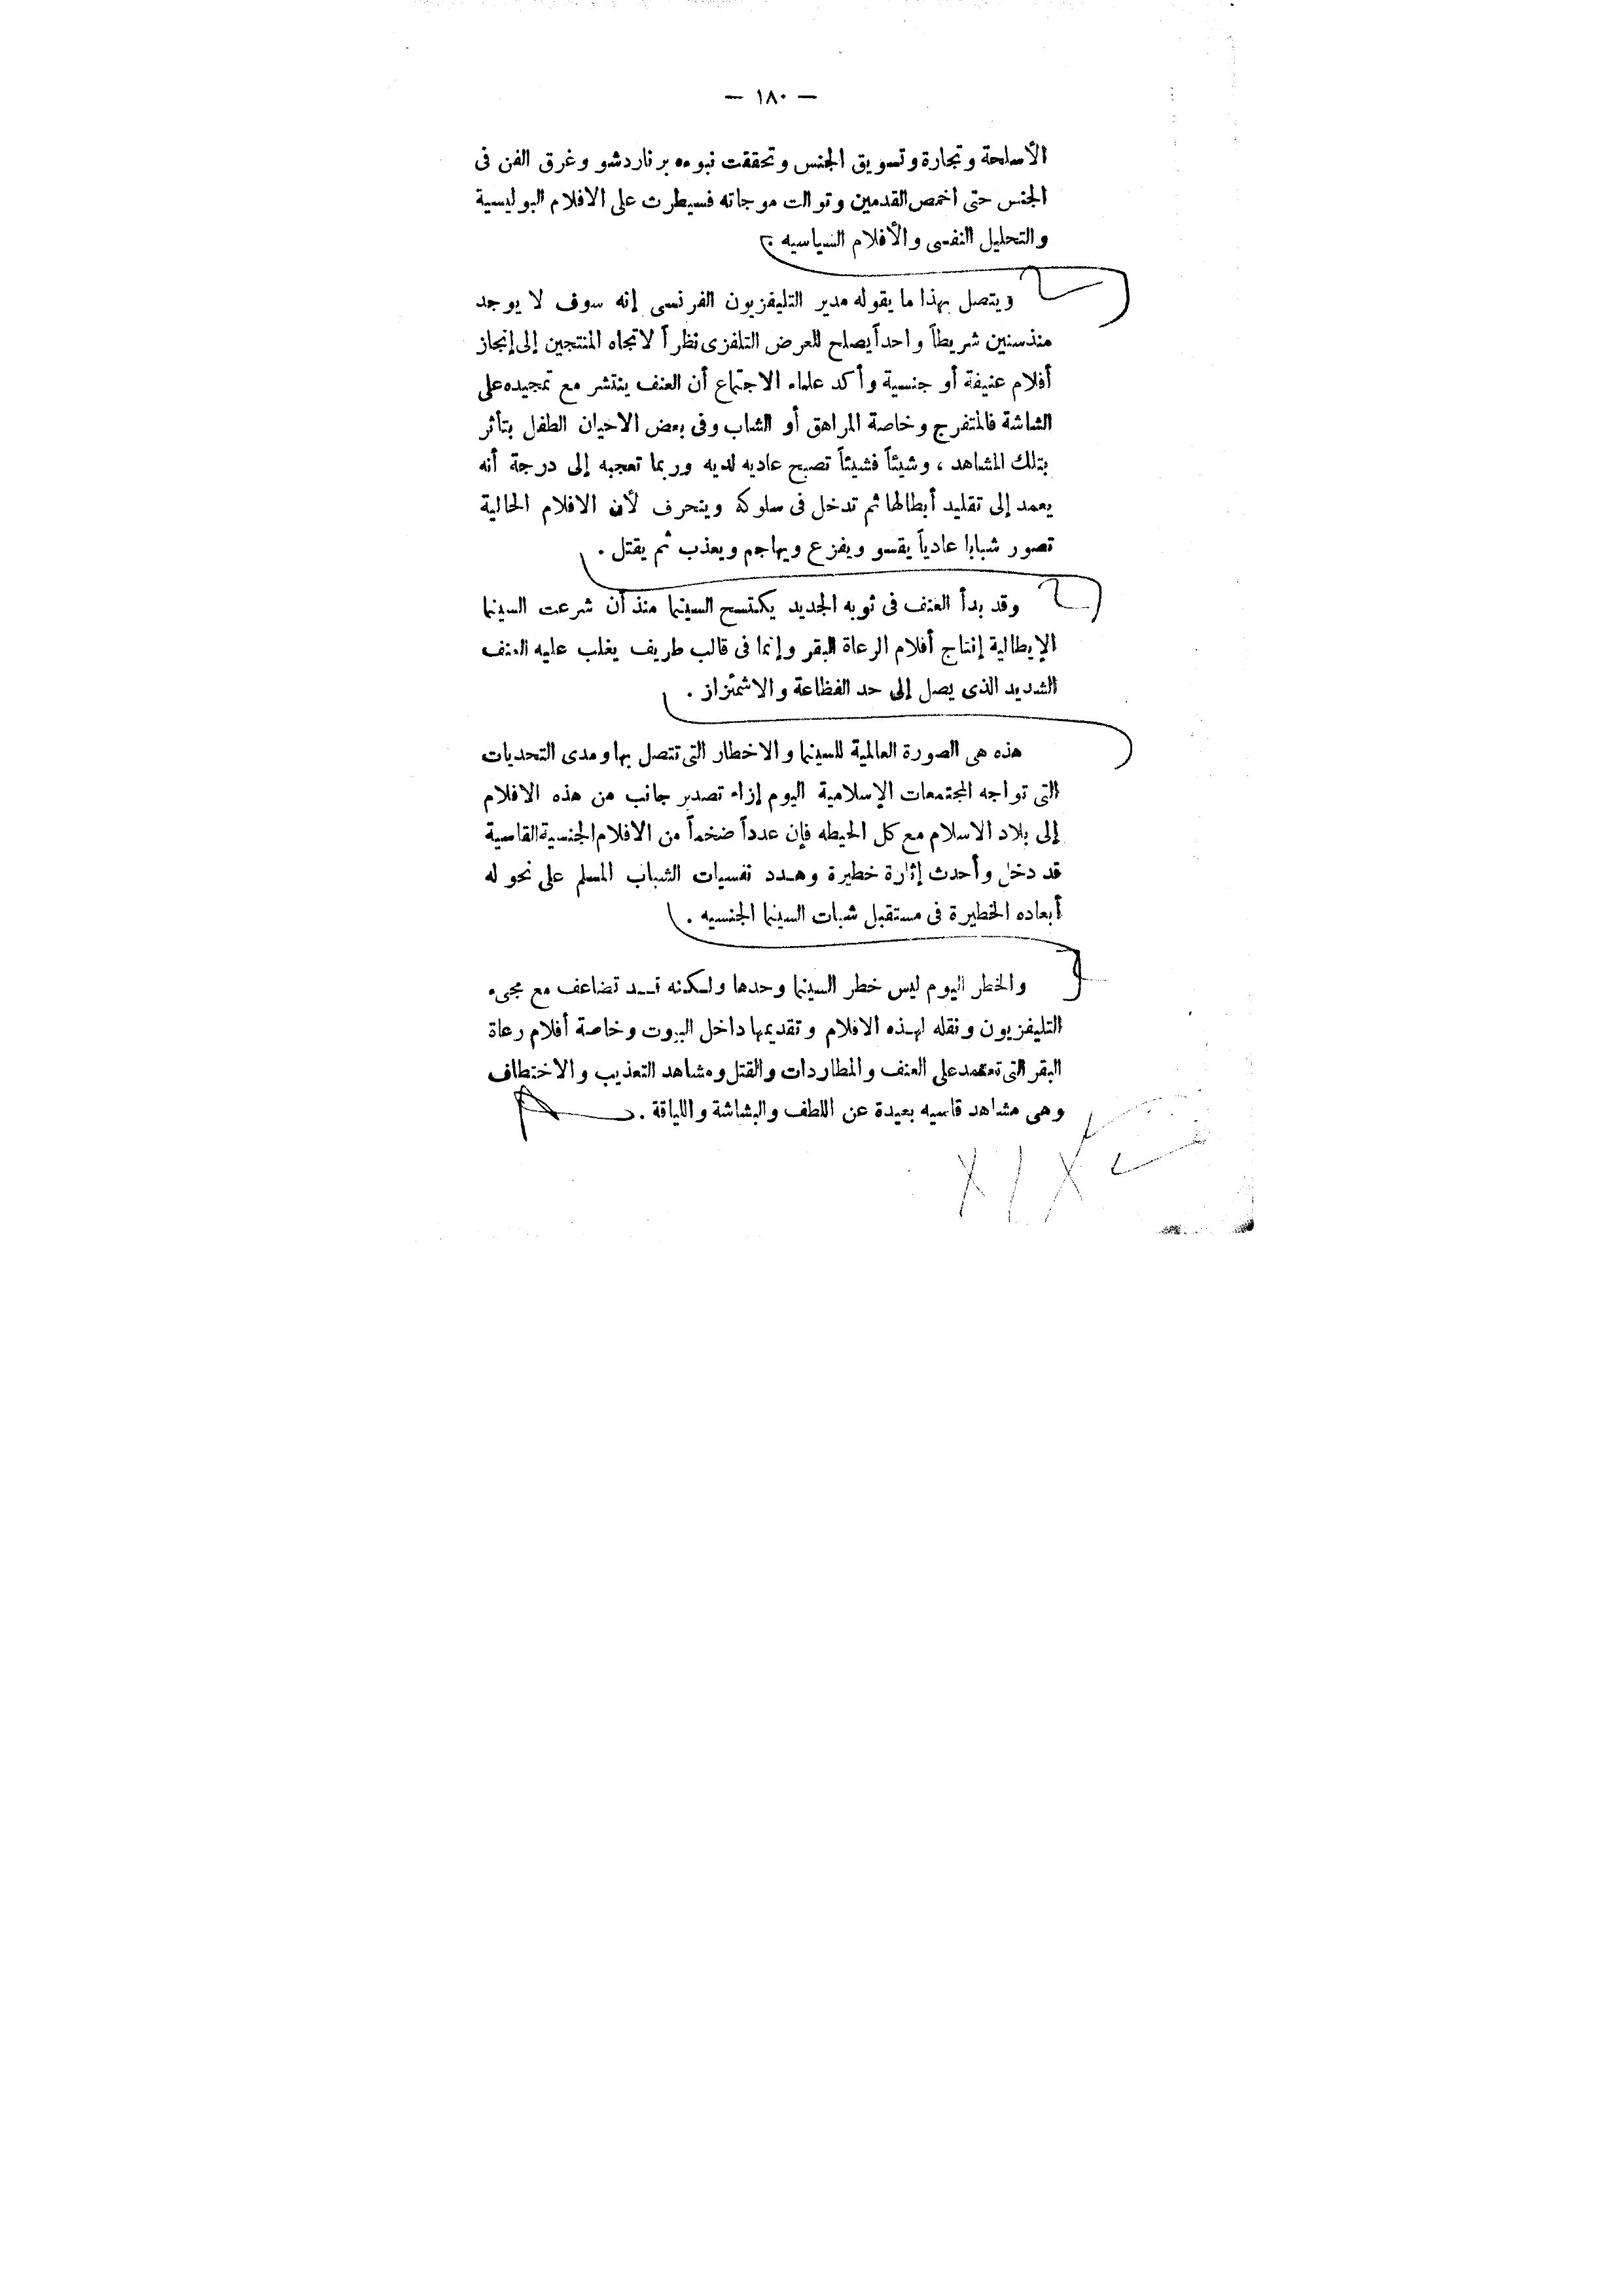 — ١٨٠ —
الأسلحة وتجارة وتسويق الجنس وتحققت نبوءه برناردشو وغرق الفن فى
الجنس حتى اخمص القدمين وتوالت موجاته فسيطرت على الافلام البوليسية
والتحليل النفسى والأفلام السياسيه .
ويتصل بهذا ما يقوله مدير التليفزيون الفرنسى إنه سوف لا يوجد
منذ سنين شريطاً واحداً يصلح للعرض التلفزى نظراً لاتجاه المنتجين إلى إنجاز
أفلام عنيفة أو جنسية وأكد علماء الاجتماع أن العنف ينتشر مع تمجيده على
الشاشة فالمتفرج وخاصة المراهق أو الشاب وفى بعض الاحيان الطفل يتأثر
بتلك المشاهد ، وشيئاً فشيئاً تصبح عاديه لديه وربما تعجبه إلى درجة أنه
يعمد إلى تقليد أبطالها ثم تدخل فى سلوكه وينحرف لأن الافلام الحالية
تصور شبابا عادياً يقسو ويفزع ويهاجم ويعذب ثم يقتل .
وقد بدأ العنف فى ثوبه الجديد يكتسح السينما منذ أن شرعت السينما
الإيطالية إنتاج أفلام الرعاة البقر وإنما فى قالب طريف يغلب عليه العنف
الشديد الذى يصل إلى حد الفظاعة والاشمئزاز .
هذه هى الصورة العالمية للسينما والاخطار التى تتصل بها ومدى التحديات
التى تواجه المجتمعات الإسلامية اليوم إزاء تصدير جانب من هذه الافلام
إلى بلاد الاسلام مع كل الحيطه فإن عدداً ضخماً من الافلام الجنسية القاسية
قد دخل وأحدث إثارة خطيرة وهدد نفسيات الشباب المسلم على نحو له
أبعاده الخطيرة فى مستقبل شبات السينما الجنسيه .
والخطر اليوم ليس خطر السينما وحدها ولكنه قد تضاعف مع مجىء
التليفزيون ونقله لهذه الافلام وتقديمها داخل البيوت وخاصة أفلام رعاة
البقر التى تعتمد على العنف والمطاردات والقتل ومشاهد التعذيب والاختطاف
وهى مشاهد قاسيه بعيدة عن اللطف والبشاشة واللياقة .